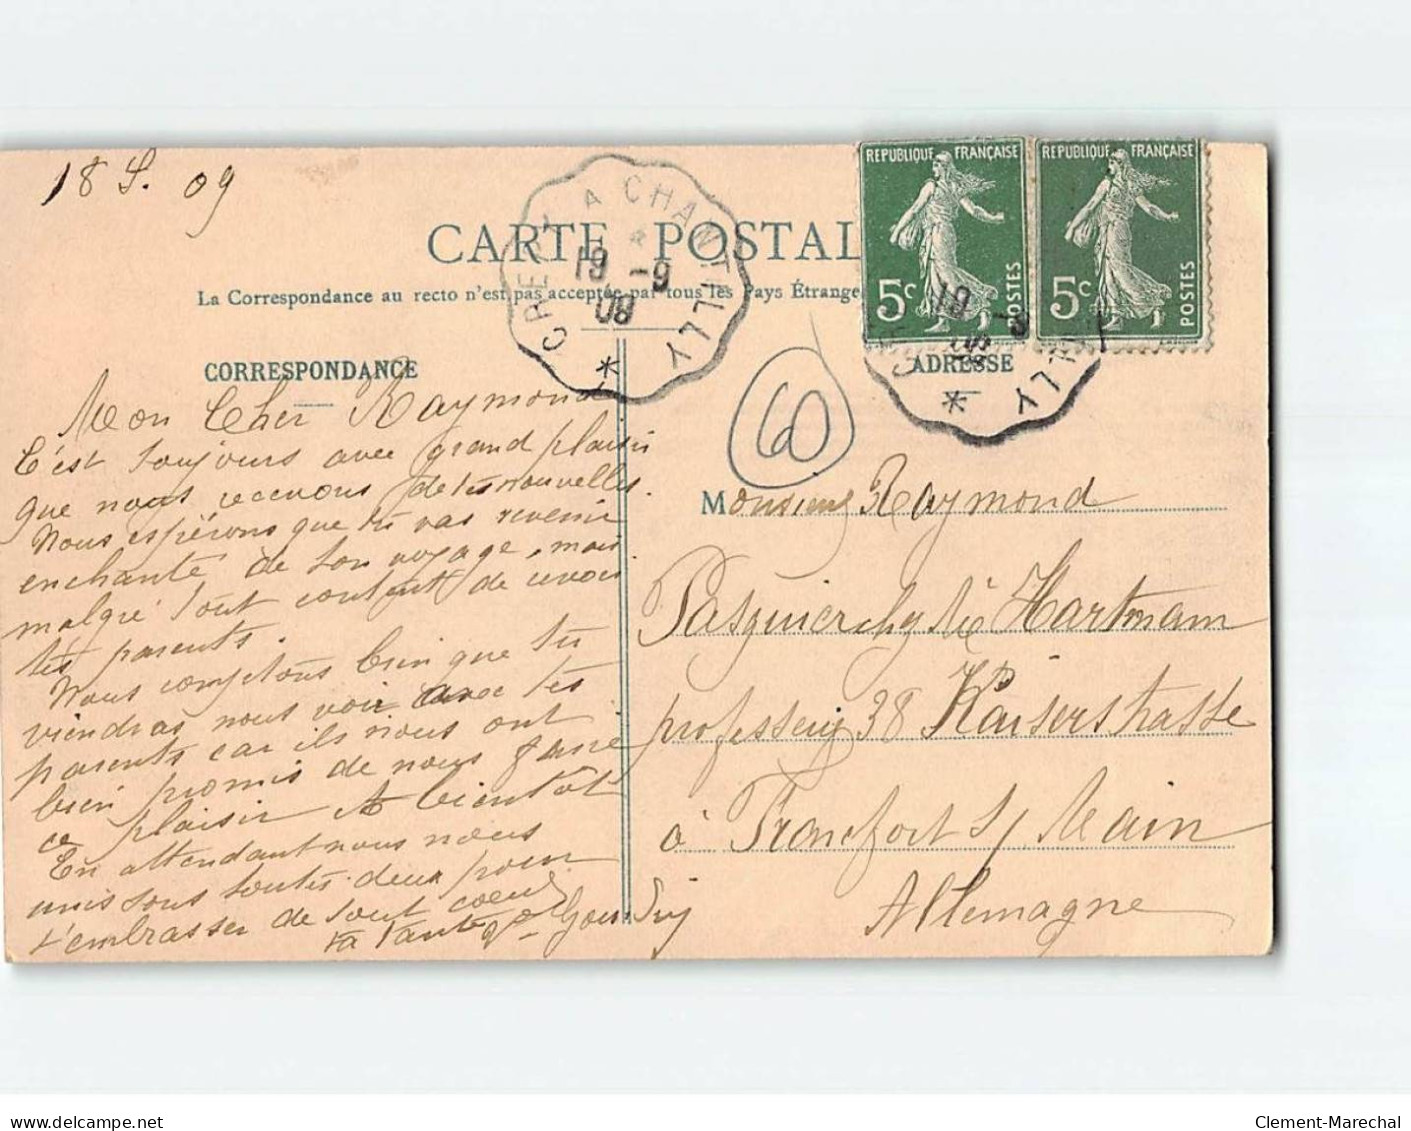 18 S. 09
CARTE POSTALE
La Correspondance au recto n'est pas acceptée par tous les Pays Étrange
CREIL A CHANTILLY
19 -9
09
REPUBLIQUE FRANÇAISE
5c POSTES
REPUBLIQUE FRANÇAISE
5c POSTES
19 -9
LLY
CORRESPONDANCE
ADRESSE
60
Mon Cher Raymond
C'est toujours avec grand plaisir
que nous recevons de tes nouvelles.
Nous espérons que tu vas revenir
enchanté de ton voyage, mais
malgré tout content de revoir
tes parents.
Nous comptons bien que tu
viendras nous voir avec tes
parents car ils nous ont
bien promis de nous faire
ce plaisir A bientôt
En attendant nous nous
unissons toutes deux pour
t'embrasser de tout coeur
ta tante
Monsieur Raymond
Pasquier chez Mr Hartmam
professeur 38 Kaiserstrasse
à Francfort s/ Main
Allemagne
delcampe.net
Clement-Marechal